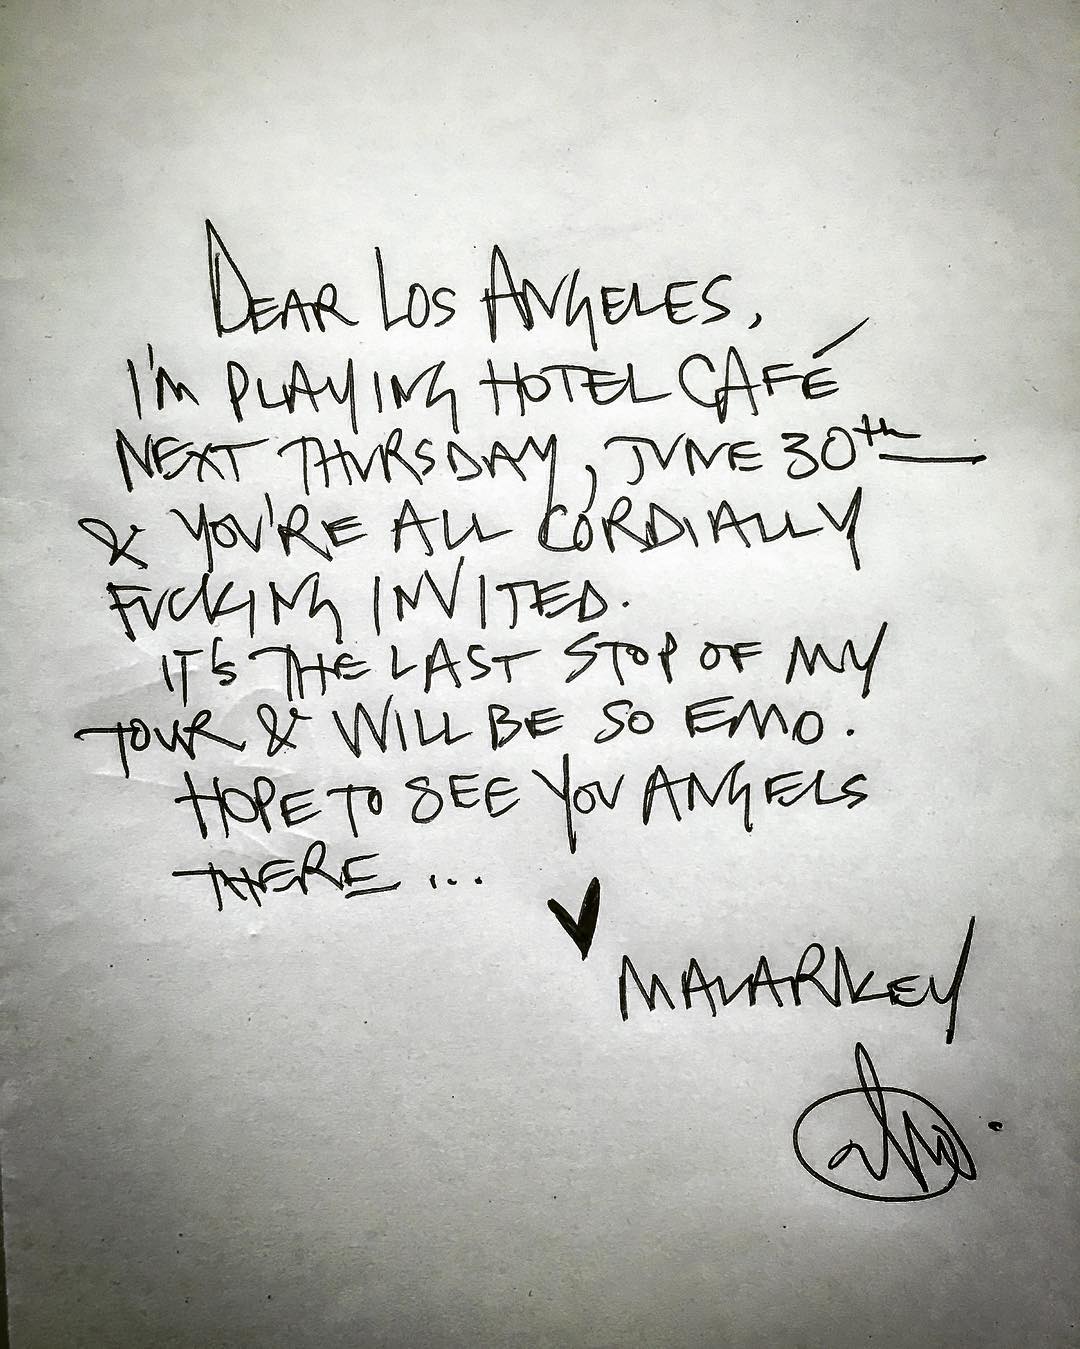 DEAR LOS ANGELES,
I'M PLAYING HOTEL CAFÉ
NEXT THURSDAY, JUNE 30th
& YOU'RE ALL CORDIALLY
FUCKING INVITED.
IT'S THE LAST STOP OF MY
TOUR & WILL BE SO EMO.
HOPE TO SEE YOU ANGELS
THERE...
♥ MALARKEY